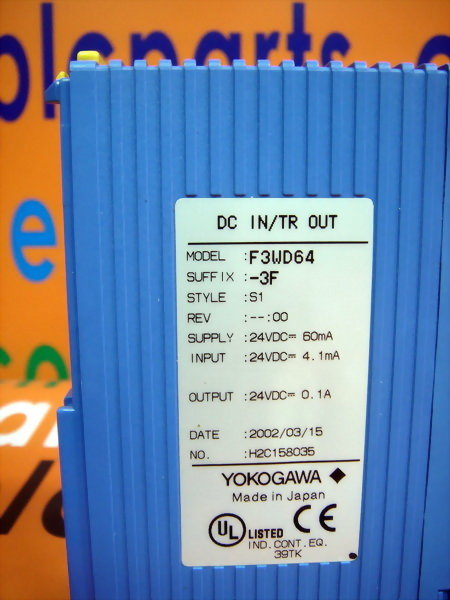 pleparts.
DC IN/TR OUT
MODEL :F3WD64
SUFFIX :-3F
STYLE :S1
REV :--:00
SUPPLY :24VDC⎓ 60mA
INPUT :24VDC⎓ 4.1mA
OUTPUT :24VDC⎓ 0.1A
DATE :2002/03/15
NO. :H2C158035
YOKOGAWA
Made in Japan
UL LISTED CE
IND.CONT.EQ.
39TK